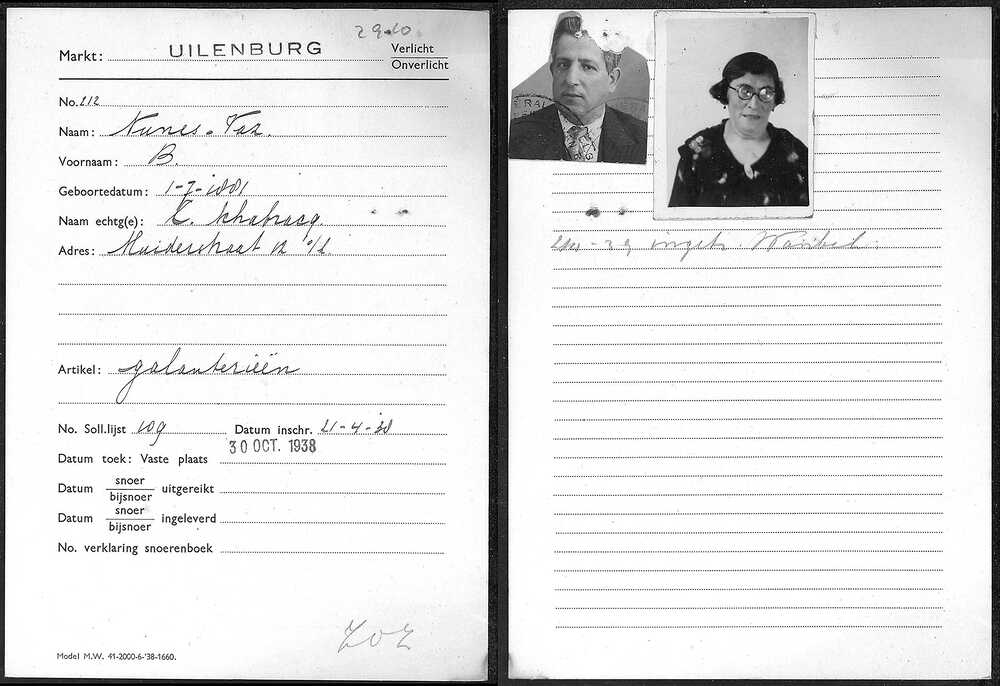 29.10.
Markt: UILENBURG Verlicht
Onverlicht
No. 212
Naam: Nunes-Vaz.
Voornaam: B.
Geboortedatum: 1-7-1881
Naam echtg(e):
Adres: Muiderstraat 12
Artikel: galanteriëën
No. Soll.lijst 109 Datum inschr. 21-4-38
30 OCT. 1938
Datum toek: Vaste plaats
Datum snoer uitgereikt
bijsnoer
Datum snoer ingeleverd
bijsnoer
No. verklaring snoerenboek
ZOZ
Model M.W. 41-2000-6-'38-1660.
ingetr.